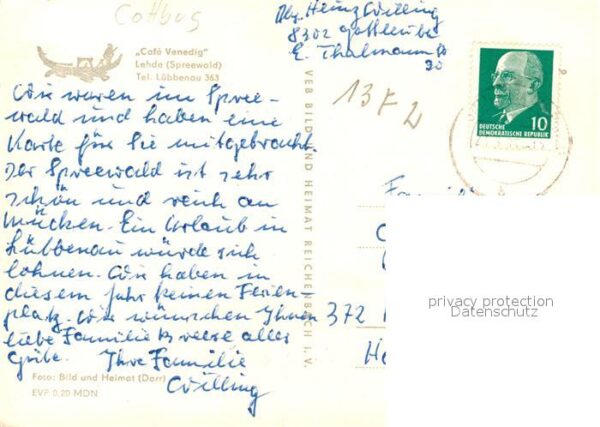 Cottbus
„Café Venedig"
Lehde (Spreewald)
Tel. Lübbenau 363
Wir waren im Spree-
wald und haben eine
Karte für Sie mitgebracht.
Der Spreewald ist sehr
schön und reich an
Mücken. Ein Urlaub in
Lübbenau würde sich
lohnen. Wir haben in
diesem Jahr keinen Ferien-
platz. Wir wünschen Ihnen
liebe Familie alles
Gute. Ihre Familie
Willing
Foto: Bild und Heimat (Darr)
EVP 0,20 MDN
VEB BILD UND HEIMAT REICHENBACH I. V.
Heinz Willing
8302 Gottleuba
E. Thälmann
30
13F2
DEUTSCHE
DEMOKRATISCHE REPUBLIK
10
372
privacy protection
Datenschutz